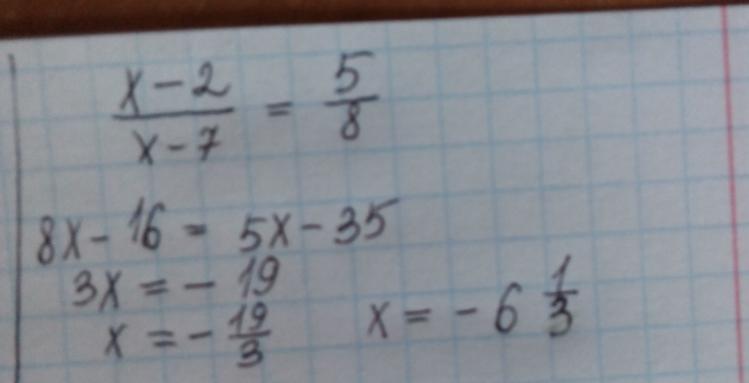 x - 2 / x - 7 = 5 / 8
8x - 16 = 5x - 35
3x = - 19
x = - 19/3   x = - 6 1/3